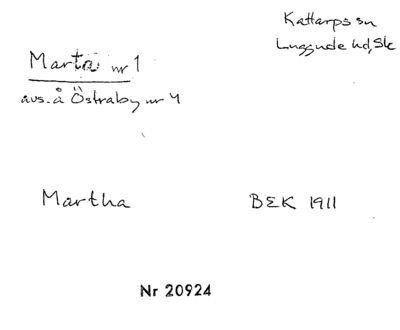 Kattarps sn
Luggude hd, Sk
Marta nr 1
avs. å Östraby nr 4
Martha
BEK 1911
Nr 20924